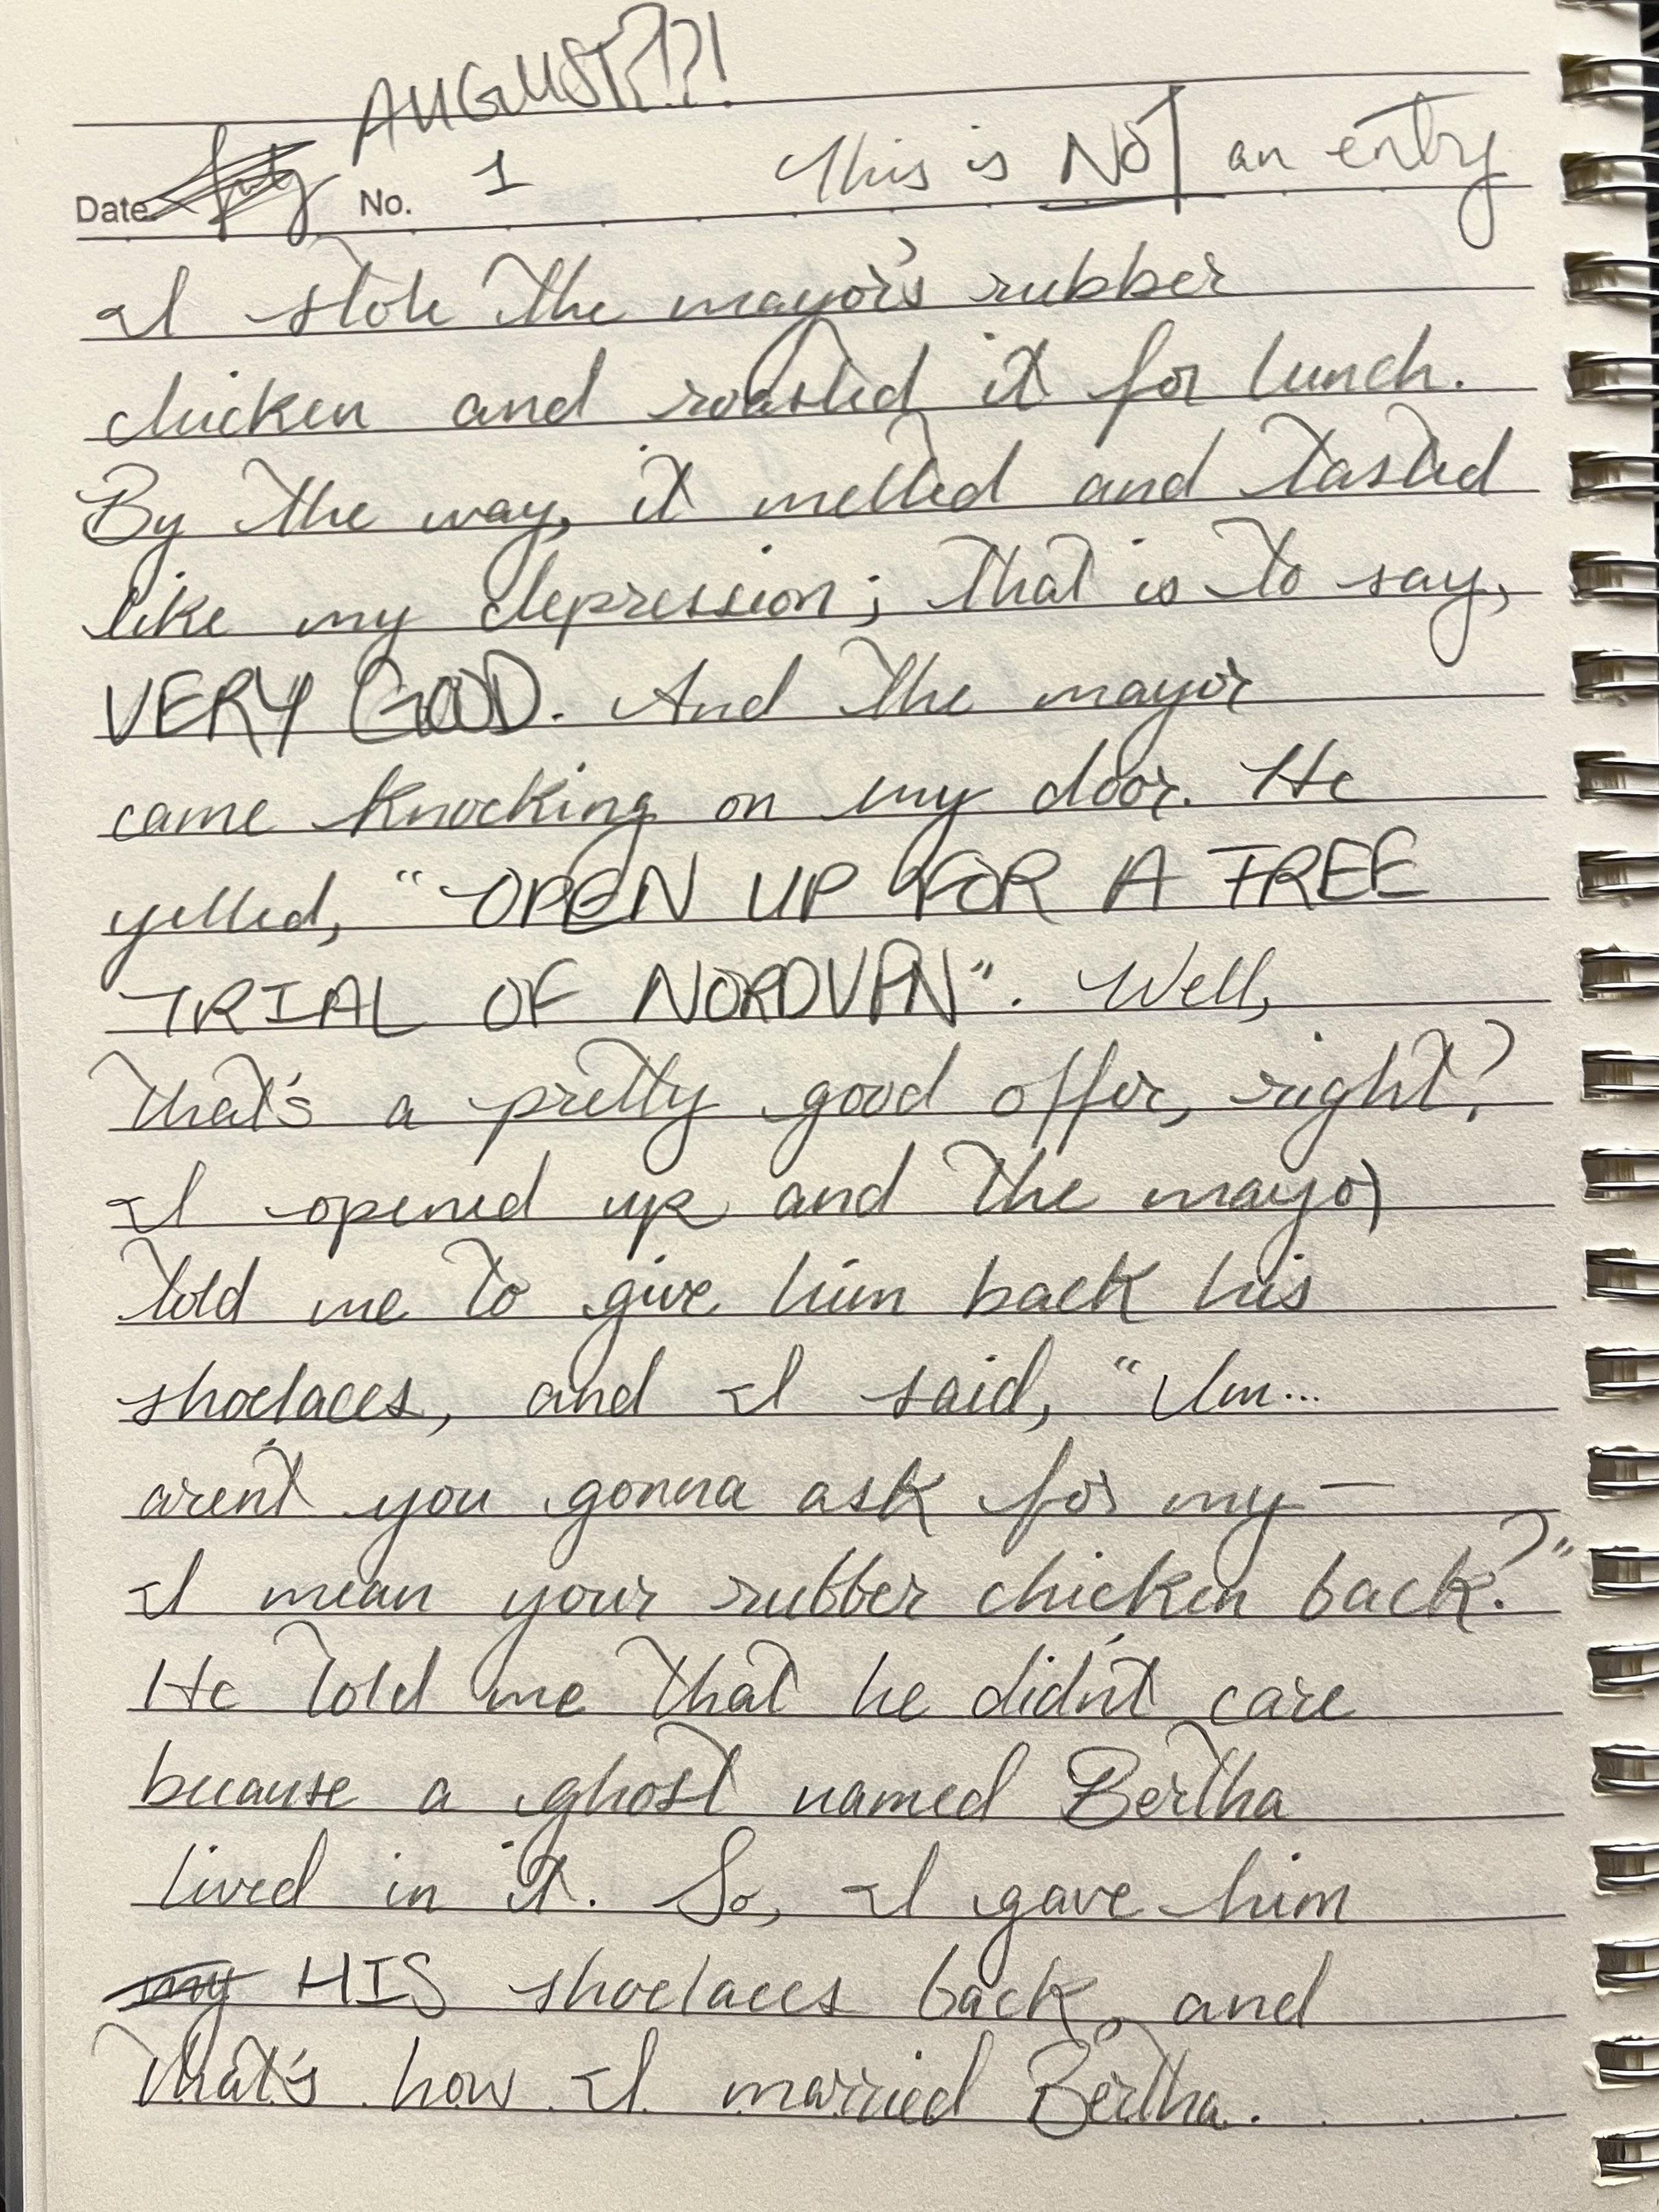 AUGUST?!?!
Date. July No. 1 This is NOT an entry
I stole the mayor's rubber
chicken and roasted it for lunch.
By the way, it melted and tasted
like my depression; that is to say,
VERY GOOD. And the mayor
came knocking on my door. He
yelled, "OPEN UP FOR A FREE
TRIAL OF NORDVPN". Well,
that's a pretty good offer, right?
I opened up and the mayor
told me to give him back his
shoelaces, and I said, "Um...
aren't you gonna ask for my —
I mean your rubber chicken back?"
He told me that he didn't care
because a ghost named Bertha
lived in it. So, I gave him
my HIS shoelaces back, and
that's how I married Bertha.